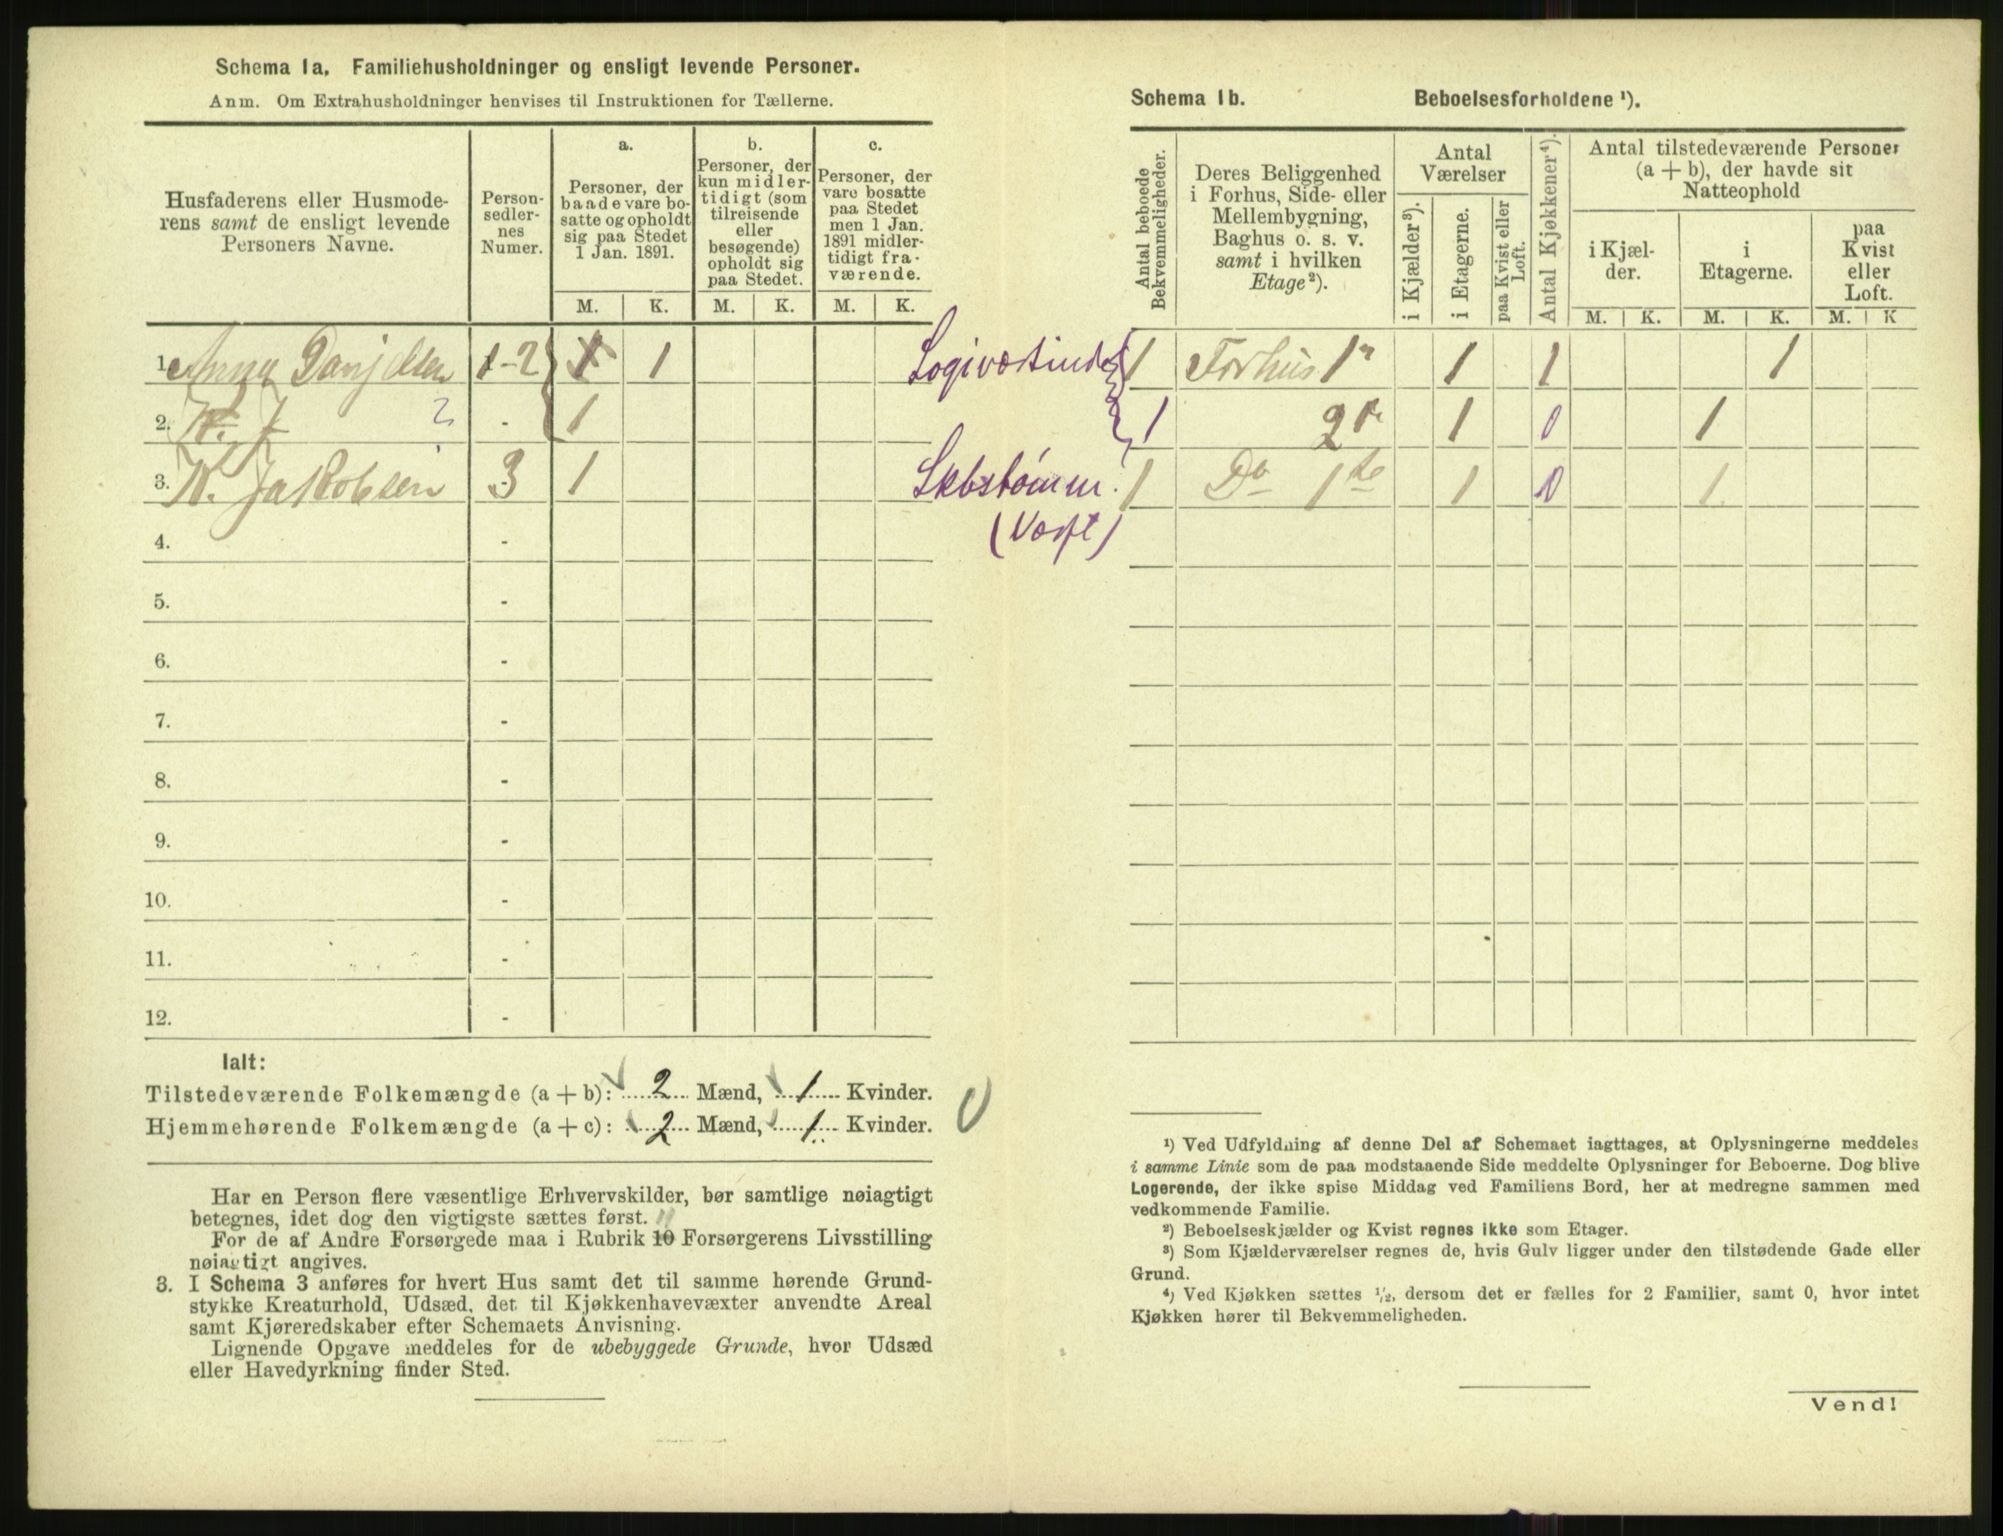 Schema 1a. Familiehusholdninger og ensligt levende Personer.
Anm. Om Extrahusholdninger henvises til Instruktionen for Tællerne.
Husfaderens eller Husmode-
rens samt de ensligt levende
Personers Navne.
Person-
sedler-
nes
Numer.
a.
Personer, der
baade vare bo-
satte og opholdt
sig paa Stedet
1 Jan. 1891.
b.
Personer, der
kun midler-
tidigt (som
tilreisende
eller
besøgende)
opholdt sig
paa Stedet.
c.
Personer, der
vare bosatte
paa Stedet
men 1 Jan.
1891 midler-
tidigt fra-
værende.
M. K. M. K. M. K.
1. Anna Danjelsen 1-2 1 1
2. W. J ? - 1
3. W. Jakobsen 3 1
4. -
5. -
6. -
7. -
8. -
9. -
10. -
11. -
12. -
Ialt:
Tilstedeværende Folkemængde (a + b): 2 Mænd, 1 Kvinder.
Hjemmehørende Folkemængde (a + c): 2 Mænd, 1 Kvinder.
Har en Person flere væsentlige Erhvervskilder, bør samtlige nøiagtigt
betegnes, idet dog den vigtigste sættes først. 11
For de af Andre Forsørgede maa i Rubrik 10 Forsørgerens Livsstilling
nøiagtigt angives.
3. I Schema 3 anføres for hvert Hus samt det til samme hørende Grund-
stykke Kreaturhold, Udsæd, det til Kjøkkenhavevæxter anvendte Areal
samt Kjøreredskaber efter Schemaets Anvisning.
Lignende Opgave meddeles for de ubebyggede Grunde, hvor Udsæd
eller Havedyrkning finder Sted.
Logiværtinde
Skbstømm.
(Værft)
Schema 1b. Beboelsesforholdene ¹).
Antal beboede
Bekvemmeligheder.
Deres Beliggenhed
i Forhus, Side- eller
Mellembygning,
Baghus o. s. v.
samt i hvilken
Etage²).
Antal
Værelser
i Kjælder³).
i Etagerne.
paa Kvist eller
Loft.
Antal Kjøkkener⁴).
Antal tilstedeværende Personer
(a + b), der havde sit
Natteophold
i Kjæl-
der.
i
Etagerne.
paa
Kvist
eller
Loft.
M. K. M. K. M. K
1 Forhus 1 1 1 1
1 2 1 0 1
1 Do 1ste 1 0 1
¹) Ved Udfyldning af denne Del af Schemaet iagttages, at Oplysningerne meddeles
i samme Linie som de paa modstaaende Side meddelte Oplysninger for Beboerne. Dog blive
Logerende, der ikke spise Middag ved Familiens Bord, her at medregne sammen med
vedkommende Familie.
²) Beboelseskjælder og Kvist regnes ikke som Etager.
³) Som Kjælderværelser regnes de, hvis Gulv ligger under den tilstødende Gade eller
Grund.
⁴) Ved Kjøkken sættes ½, dersom det er fælles for 2 Familier, samt 0, hvor intet
Kjøkken hører til Bekvemmeligheden.
Vend!